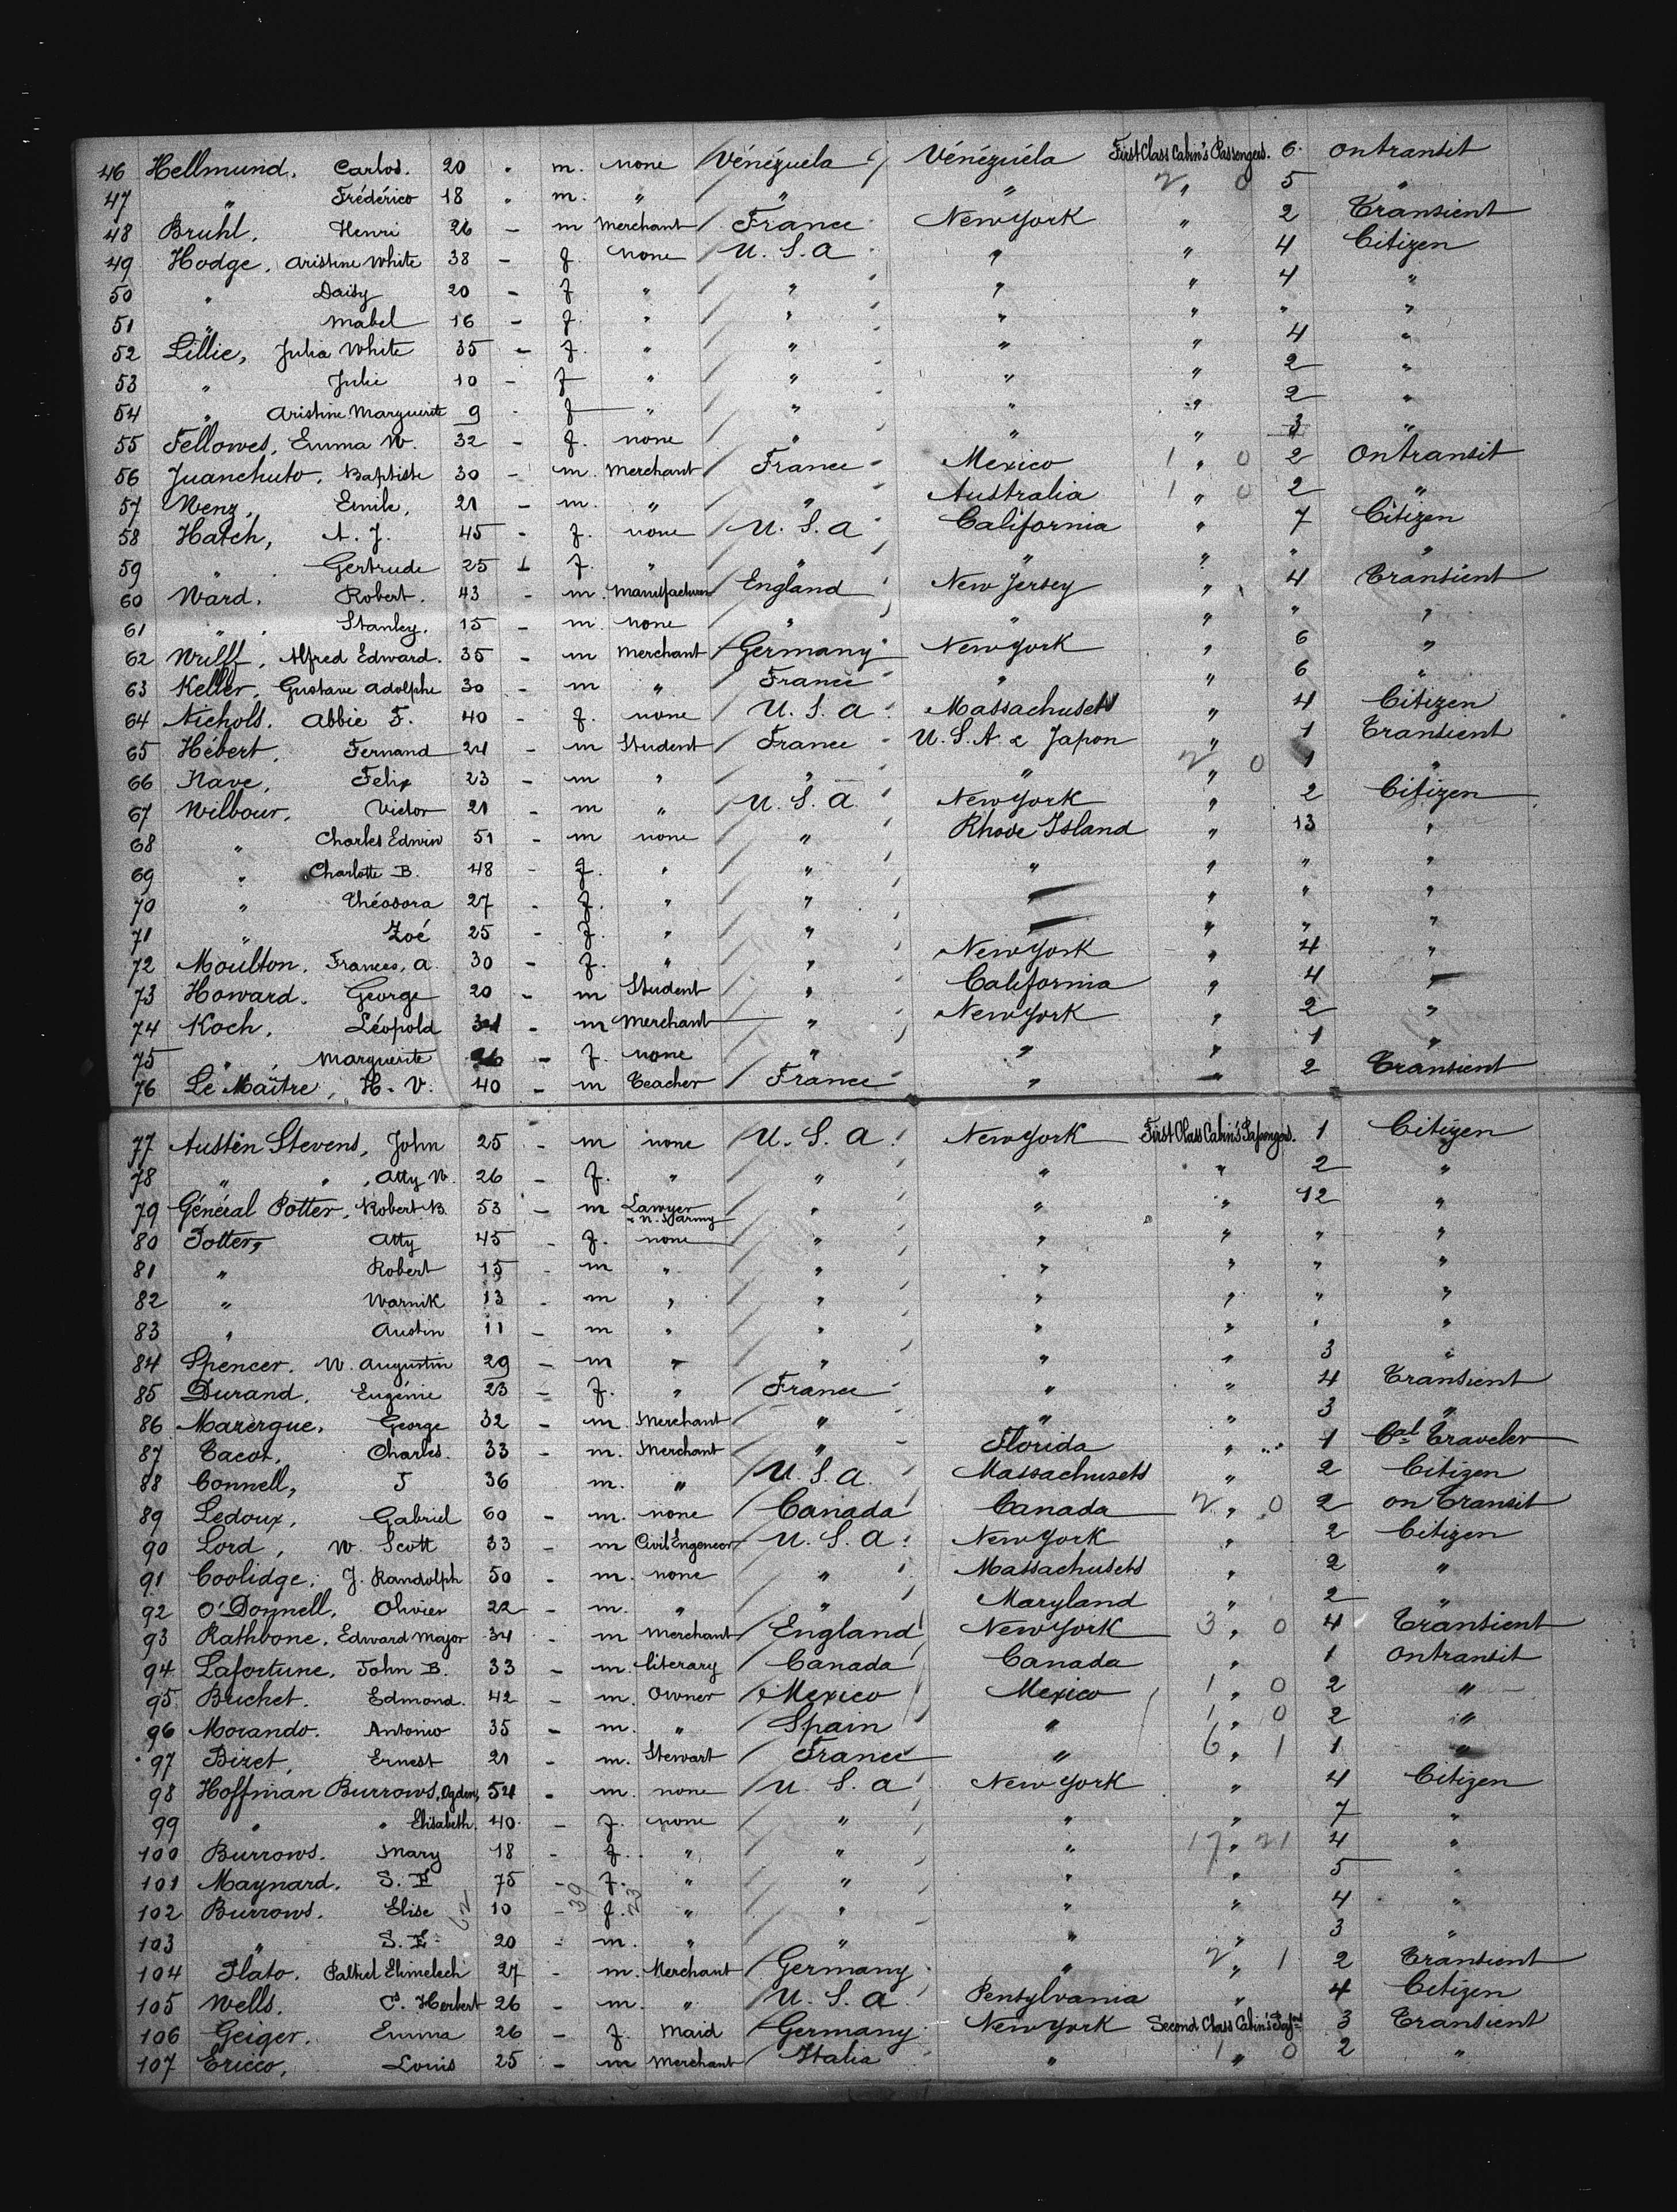 46 Hellmund, Carlos. 20 " m. none Vénézuela Vénézuéla First Class Cabin's Passengers. 6 On transit
47 " Frédérico 18 " m. " " " 2 " 0 5 "
48 Bruhl, Henri 26 - m Merchant France New York " 2 Transient
49 Hodge, Aristine White 38 - f. none U.S.A " " 4 Citizen
50 " Daisy 20 - f " " " " 4 "
51 " Mabel 16 - f. " " " " " "
52 Lillie, Julia White 35 - f. " " " " 4 "
53 " Julie 10 - f " " " " 2 "
54 " Aristine Marguerite 9 - f " " " " 2 "
55 Fellowes, Emma W. 32 - f. none " " " 3 "
56 Juanchuto, Baptiste 30 - m. Merchant France Mexico 1 " 0 2 On transit
57 Wenz, Emile, 21 - m. " " Australia 1 " 0 2 "
58 Hatch, A. J. 45 - f. none U.S.A California " 7 Citizen
59 " Gertrude 25 - f. " " " " " "
60 Ward, Robert. 43 - m. Manufacturer England New Jersey " 4 Transient
61 " Stanley. 15 - m. none " " " " "
62 Wulff, Alfred Edward. 35 - m Merchant Germany New York " 6 "
63 Keller, Gustave Adolphe 30 - m " France " " 6 "
64 Nichols. Abbie F. 40 - f. none U.S.A. Massachusets " 4 Citizen
65 Hébert, Fernand 24 - m Student France U.S.A. & Japon " 1 Transient
66 Nave, Felix 23 - m " " " 2 " 0 1 "
67 Wilbour, Victor 21 - m " U.S.A New York " 2 Citizen
68 " Charles Edwin 51 - m none " Rhode Island " 13 "
69 " Charlotte B. 48 - f. " " " " " "
70 " Théodora 27 - f. " " " " " "
71 " Zoé 25 - f. " " " " " "
72 Moulton, Frances, A. 30 - f. " " New York " 4 "
73 Howard. George 20 - m Student " California " 4 "
74 Koch, Léopold - m Merchant " New York " 2 "
75 " Marguerite - f. none " " " 1 "
76 Le Maître, H. V. 40 - m Teacher France " " 2 Transient
77 Austin Stevens, John 25 - m none U.S.A. New York First Class Cabin's Passengers. 1 Citizen
78 " " , Atty W. 26 - f. " " " " 2 "
79 Général Potter, Robert B. 53 - m Lawyer " " " 12 "
U. S. army
80 Potter, Atty 45 - f. none " " " " "
81 " Robert 15 - m " " " " " "
82 " Warnik 13 - m " " " " " "
83 " Austin 11 - m " " " " " "
84 Spencer, W. Augustin 29 - m " " " " 3 "
85 Durand, Eugénie 23 - f. " France " " 4 Transient
86 Mazergue, George 32 - m. Merchant " " " 3 "
87 Tacot, Charles. 33 - m. Merchant " Florida " 1 Cal Traveler
88 Connell, J 36 m. " U.S.A. Massachusets " 2 Citizen
89 Ledoux, Gabriel 60 - m. none Canada Canada 2 " 0 2 on Transit
90 Lord, W. Scott 33 - m Civil Engeneer U.S.A. New York " 2 Citizen
91 Coolidge, J. Randolph 50 - m. none " Massachusets " 2 "
92 O'Donnell, Olivier 22 - m. " " Maryland " 2 "
93 Rathbone, Edward Major 34 - m Merchant England New York 3 " 0 4 Transient
94 Lafortune, John B. 33 - m. literary Canada Canada " 1 On transit
95 Buchet. Edmond. 42 - m. Owner Mexico Mexico 1 " 0 2 "
96 Morando. Antonio 35 - m. " Spain " 1 " 0 2 "
97 Bizet, Ernest 21 - m. Stewart France " 6 " 1 1 "
98 Hoffman Burrows, Ogden, 54 - m. none U.S.A New York " 4 Citizen
99 " " Elisabeth. 40 - f. none " " " 7 "
100 Burrows. Mary 18 - f. " " " 17 " 21 4 "
101 Maynard. S. E 75 - f. " " " " 5 "
102 Burrows. Elise 62 10 - 39 f. 23 " " " " 4 "
103 " S. E 20 - m. " " " " 3 "
104 Plato. Paltiel Elimelech 27 - m. Merchant Germany " 2 " 1 2 Transient
105 Wells. C. Herbert 26 - m. " U.S.A. Pensylvania " 4 Citizen
106 Geiger. Emma 26 - f. Maid Germany New York Second Class Cabin's 3 Transient
107 Ericco, Louis 25 - m Merchant Italia " 1 " 0 2 "